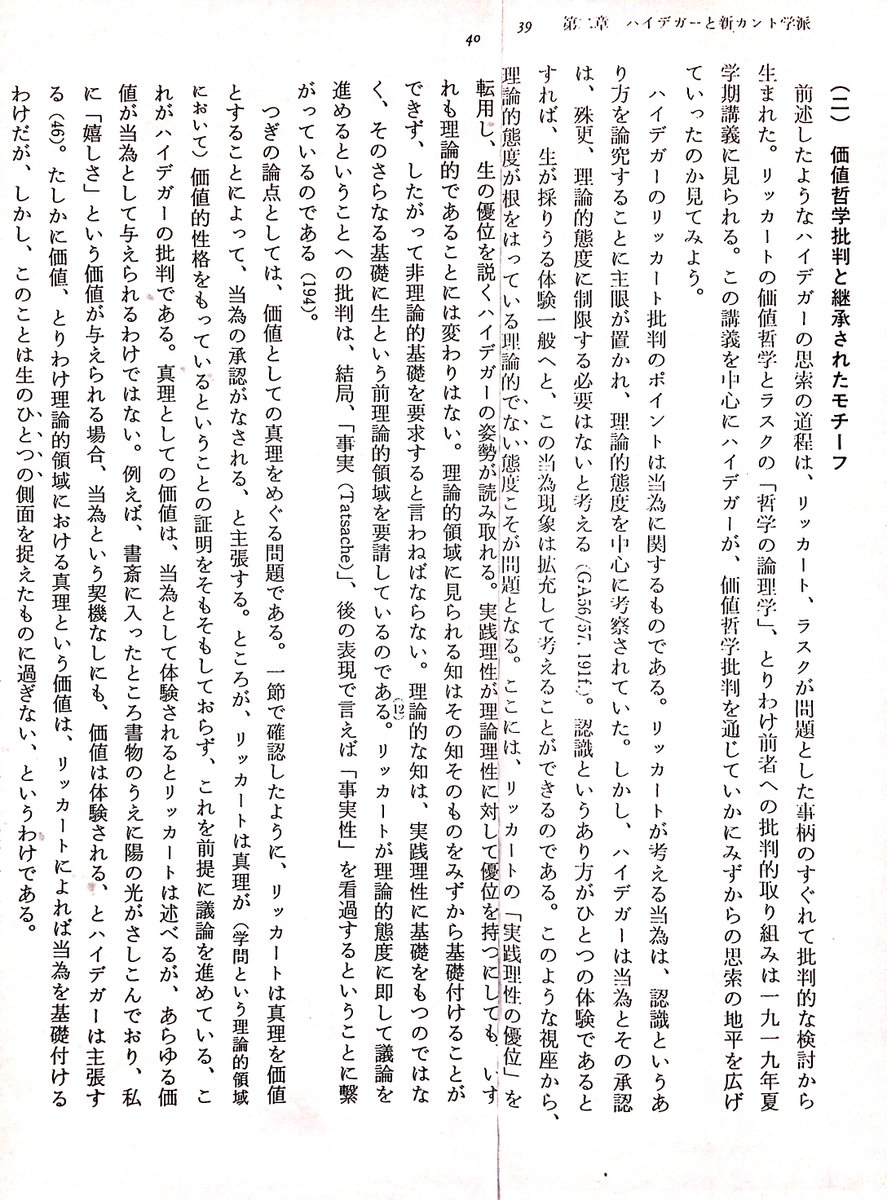 39　第二章　ハイデガーと新カント学派
（二）　価値哲学批判と継承されたモチーフ
前述したようなハイデガーの思索の道程は、リッカート、ラスクが問題とした事柄のすぐれて批判的な検討から
生まれた。リッカートの価値哲学とラスクの「哲学の論理学」、とりわけ前者への批判的取り組みは一九一九年夏
学期講義に見られる。この講義を中心にハイデガーが、価値哲学批判を通じていかにみずからの思索の地平を広げ
ていったのか見てみよう。
ハイデガーのリッカート批判のポイントは当為に関するものである。リッカートが考える当為は、認識というあ
り方を論究することに主眼が置かれ、理論的態度を中心に考察されていた。しかし、ハイデガーは当為とその承認
は、殊更、理論的態度に制限する必要はないと考える（GA56/57, 191f.）。認識というあり方がひとつの体験であると
すれば、生が採りうる体験一般へと、この当為現象は拡充して考えることができるのである。このような視座から、
理論的態度が根をはっている理論的でない態度こそが問題となる。ここには、リッカートの「実践理性の優位」を
40
転用し、生の優位を説くハイデガーの姿勢が読み取れる。実践理性が理論理性に対して優位を持つにしても、いず
れも理論的であることには変わりはない。理論的領域に見られる知はその知そのものをみずから基礎付けることが
できず、したがって非理論的基礎を要求すると言わねばならない。理論的な知は、実践理性に基礎をもつのではな
く、そのさらなる基礎に生という前理論的領域を要請しているのである(12)。リッカートが理論的態度に即して議論を
進めるということへの批判は、結局、「事実（Tatsache）」、後の表現で言えば「事実性」を看過するということに繋
がっているのである（194）。
つぎの論点としては、価値としての真理をめぐる問題である。一節で確認したように、リッカートは真理を価値
とすることによって、当為の承認がなされる、と主張する。ところが、リッカートは真理が（学問という理論的領域
において）価値的性格をもっているということの証明をそもそもしておらず、これを前提に議論を進めている、こ
れがハイデガーの批判である。真理としての価値は、当為として体験されるとリッカートは述べるが、あらゆる価
値が当為として与えられるわけではない。例えば、書斎に入ったところ書物のうえに陽の光がさしこんでおり、私
に「嬉しさ」という価値が与えられる場合、当為という契機なしにも、価値は体験される、とハイデガーは主張す
る（46）。たしかに価値、とりわけ理論的領域における真理という価値は、リッカートによれば当為を基礎付ける
わけだが、しかし、このことは生のひとつの側面を捉えたものに過ぎない、というわけである。